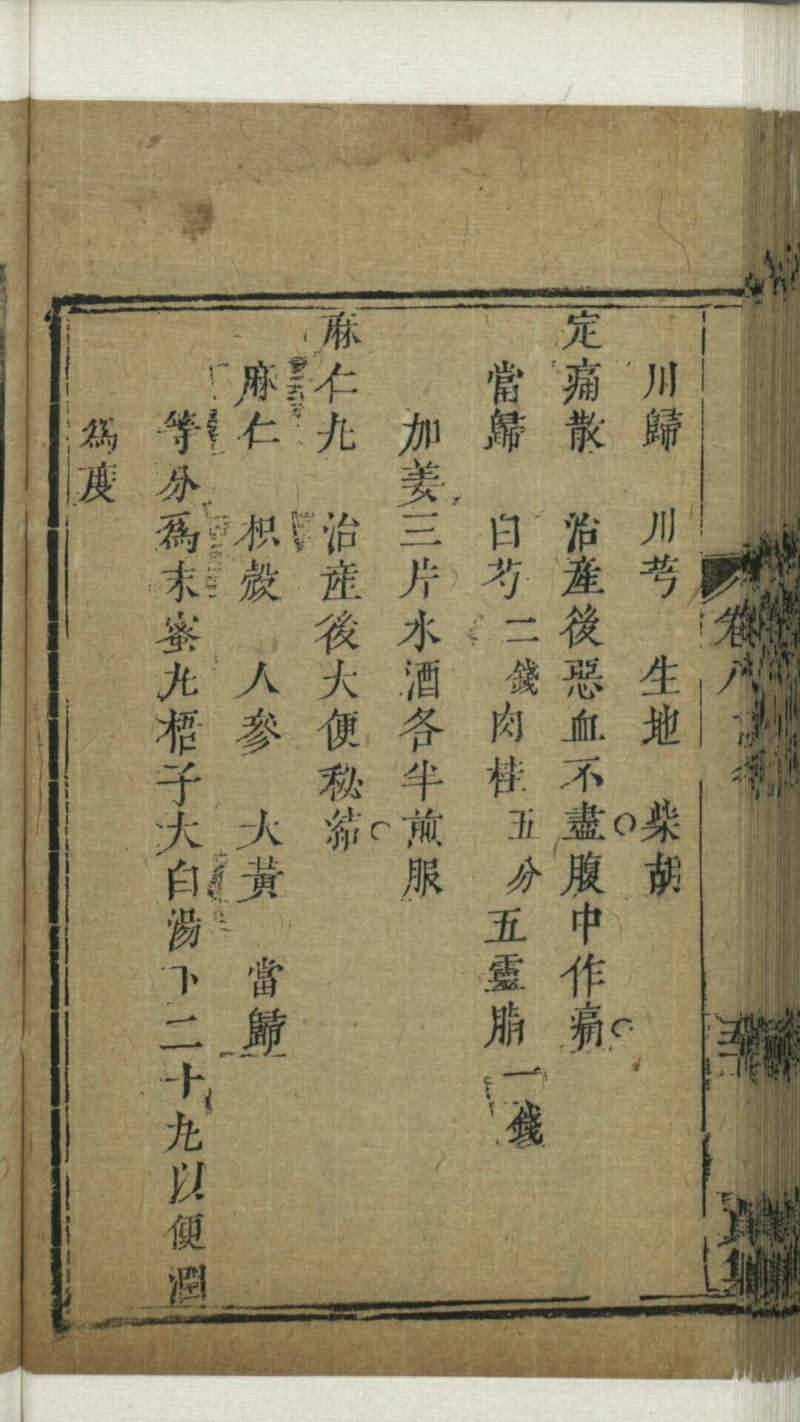 川歸　川芎　生地　柴胡
定痛散　治產後惡血不盡腹中作痛
當歸　白芍二錢肉桂五分五靈脂一錢
加姜三片水酒各半煎服
麻仁九　治產後大便秘㳍
麻仁　枳殼　人參　大黃　當歸
等分爲末蜜九梧子大白湯下二十九以便潤
爲度
卷八